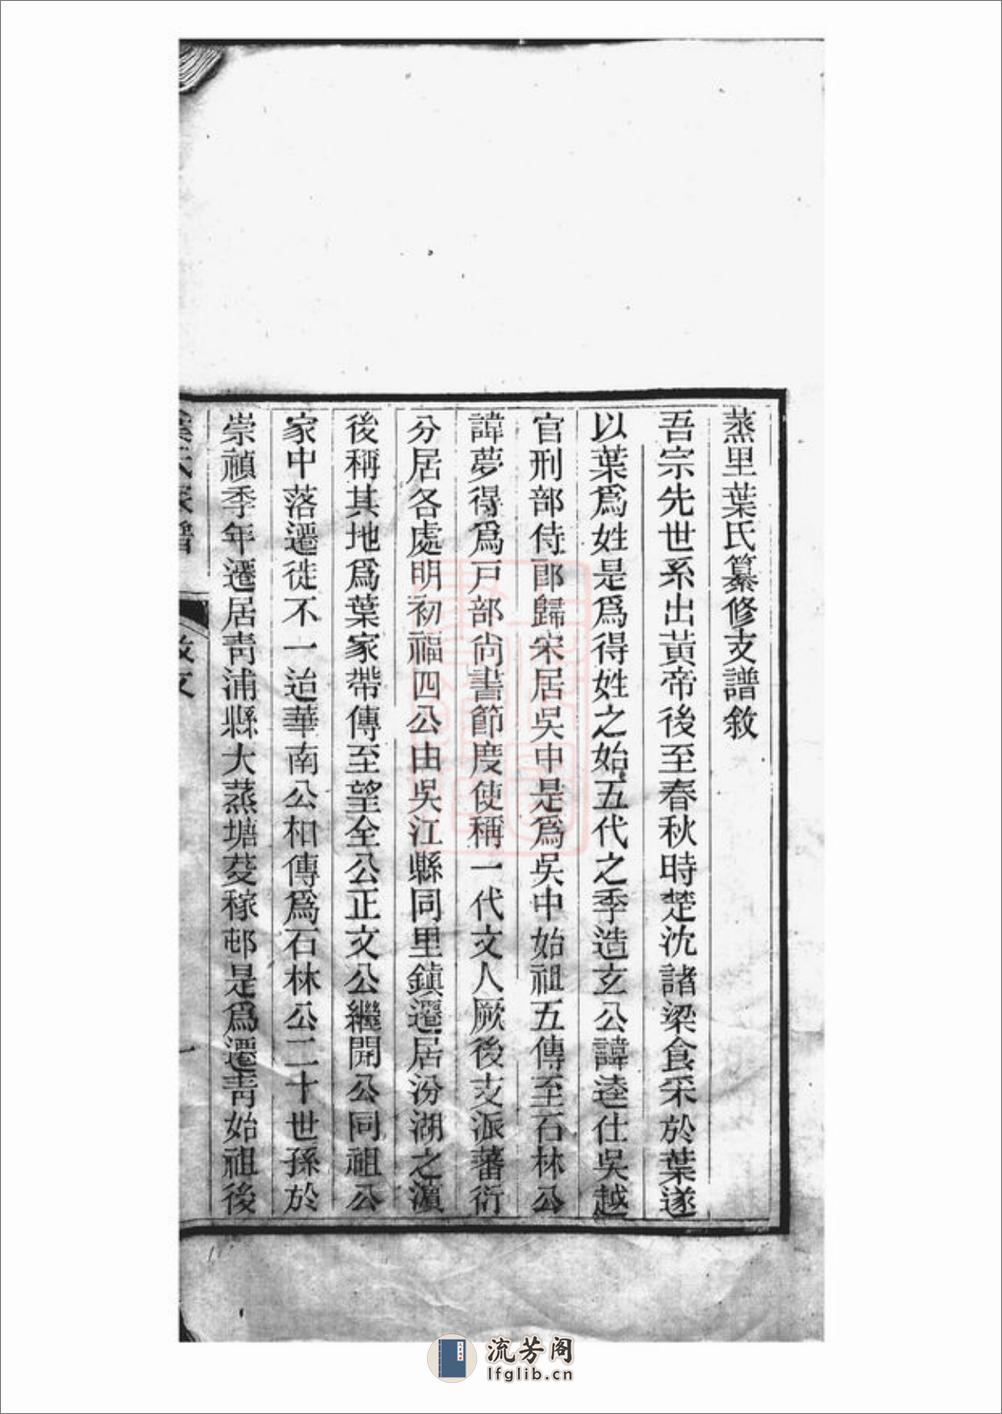 蒸里葉氏纂修支譜敘
吾宗先世系出黃帝後至春秋時楚沈諸梁食采於葉遂
以葉爲姓是爲得姓之始五代之季造玄公諱逵仕吳越
官刑部侍郎歸宋居吳中是爲吳中始祖五傳至石林公
諱夢得爲戸部尚書節度使稱一代文人厥後支派蕃衍
分居各處明初福四公由吳江縣同里鎮遷居汾湖之濵
後稱其地爲葉家帶傳至望全公正文公繼開公同祖公
家中落遷徙不一迨華南公相傳爲石林公二十世孫於
崇禎季年遷居靑浦縣大蒸塘茭稼邨是爲遷靑始祖後
葉氏家譜 敘文 一
流芳阁
lfglib.cn